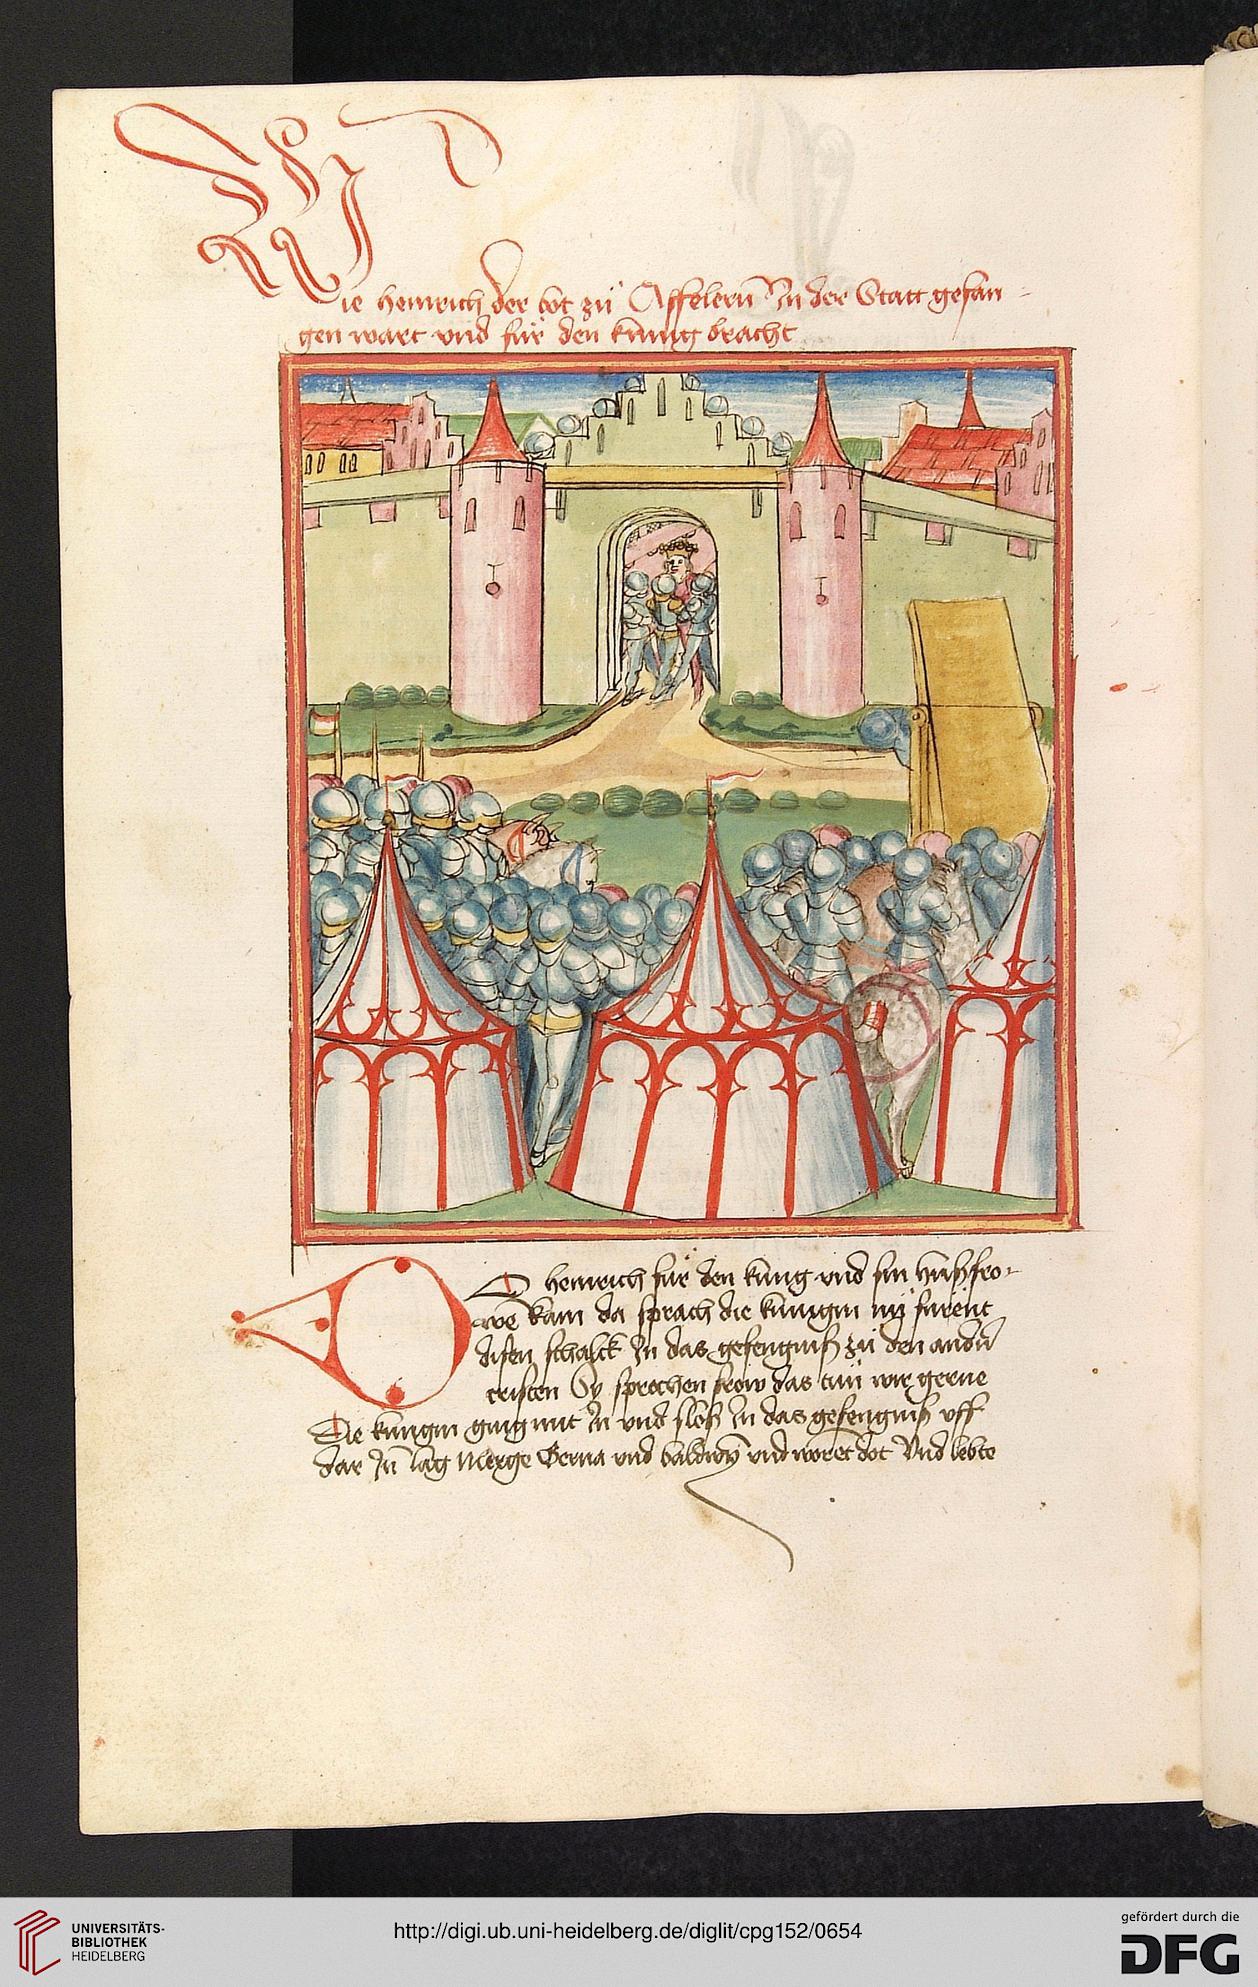 Wie heinrich der bot zů Affelern In der Statt gefan-
gen wart vnd für den kunig bracht
DO heinrich für den kung vnd sin hußfro-
we kam da sprach die kunigin nu furent
disen schalck In das gefengniß zů den andn
cristen Sy sprechen frow das tun wir gerne
Die kungin ging mit In vnd sloß In das gefengniß uff
dar In lag Merge Gerna vnd baldwyn vnd woret dot Vnd lebte
UNIVERSITÄTS-
BIBLIOTHEK
HEIDELBERG
http://digi.ub.uni-heidelberg.de/diglit/cpg152/0654
gefördert durch die
DFG